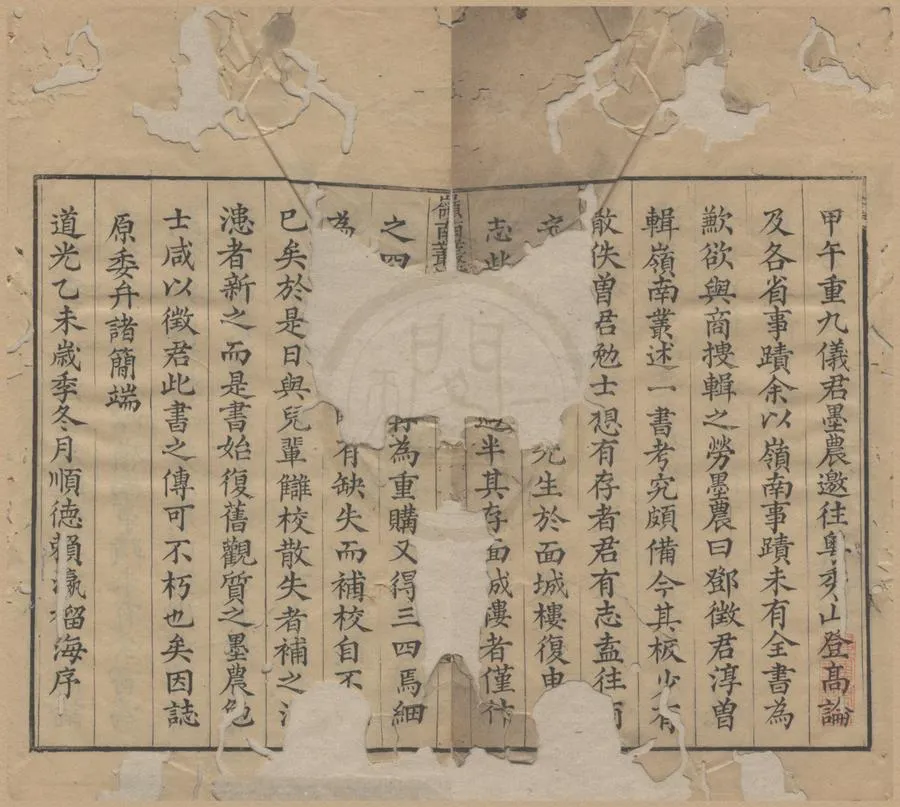 甲午重九儀君墨農邀往粵秀山登高論
及各省事蹟余以嶺南事蹟未有全書為
歉欲與商搜輯之勞墨農曰鄧徵君淳曽
輯嶺南叢述一書考究頗備今其板少有
散佚曽君勉士想有存者君有志盍往商
先生於面城樓復申
志此 過半其存面城樓者僅什
嶺南叢
之四 為重購又得三四焉細
為 有缺失而補校自不
已矣於是日與兒輩讎校散失者補之漫
漶者新之而是書始復舊觀質之墨農勉
士咸以徵君此書之傳可不朽也矣因誌
原委弁諸簡端
道光乙未歲季冬月順德賴瀛榴海序